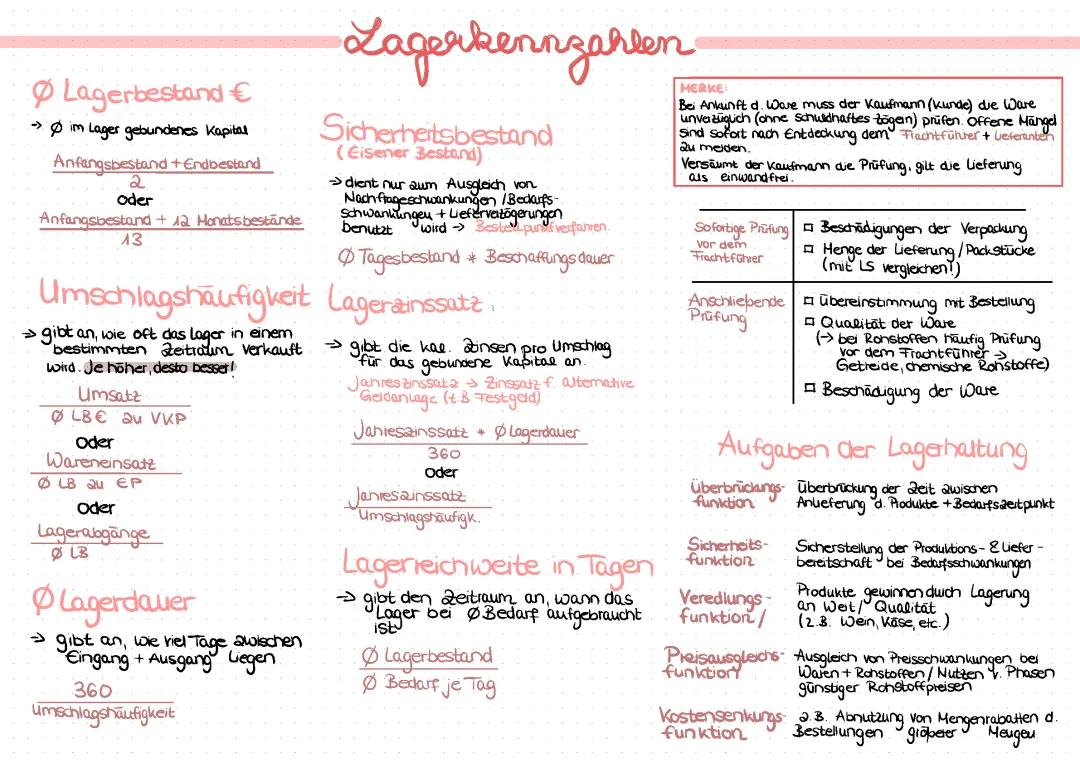 Lagerkennzahlen
Ø Lagerbestand €
→ Ø im Lager gebundenes Kapital
Anfangsbestand + Endbestand
2
oder
Anfangsbestand + 12 Monatsbestände
13
Umschlagshäufigkeit
→ gibt an, wie oft das Lager in einem
bestimmten Zeitraum verkauft
wird. Je höher, desto besser!
Umsatz
Ø LB€ zu VKP
oder
Wareneinsatz
Ø LB zu EP
oder
Lagerabgänge
Ø LB
Ø Lagerdauer
→ gibt an, wie viel Tage zwischen
Eingang + Ausgang liegen
360
Umschlagshäufigkeit
Sicherheitsbestand
(Eisener Bestand)
→ dient nur zum Ausgleich von
Nachfrageschwankungen / Bedarfs-
schwankungen + Lieferverzögerungen
benutzt wird → Bestellpunktverfahren.
Ø Tagesbestand * Beschaffungsdauer
Lagerzinssatz
→ gibt die kal. Zinsen pro Umschlag
für das gebundene Kapital an.
Jahreszinssatz → Zinssatz f. alternative
Geldanlage (z.B Festgeld)
Jahreszinssatz * Ø Lagerdauer
360
oder
Jahreszinssatz
Umschlagshäufigk.
Lagerreichweite in Tagen
→ gibt den Zeitraum an, wann das
Lager bei Ø Bedarf aufgebraucht
ist
Ø Lagerbestand
Ø Bedarf je Tag
MERKE:
Bei Ankunft d. Ware muss der Kaufmann (Kunde) die Ware
unverzüglich (ohne schuldhaftes zögern) prüfen. Offene Mängel
sind sofort nach Entdeckung dem Frachtführer + Lieferanten
zu melden.
Versäumt der Kaufmann die Prüfung, gilt die Lieferung
als einwandfrei.
Sofortige Prüfung
vor dem
Frachtführer
□ Beschädigungen der Verpackung
□ Menge der Lieferung / Packstücke
(mit LS vergleichen!)
Anschließende
Prüfung
□ Übereinstimmung mit Bestellung
□ Qualität der Ware
(→ bei Rohstoffen häufig Prüfung
vor dem Frachtführer →
Getreide, chemische Rohstoffe)
□ Beschädigung der Ware
Aufgaben der Lagerhaltung
Überbrückungs-
funktion
Überbrückung der Zeit zwischen
Anlieferung d. Produkte + Bedarfszeitpunkt
Sicherheits-
funktion
Sicherstellung der Produktions- & Liefer-
bereitschaft bei Bedarfsschwankungen
Veredlungs-
funktion /
Produkte gewinnen durch Lagerung
an Wert / Qualität
(z.B. Wein, Käse, etc.)
Preisausgleichs-
funktion
Ausgleich von Preisschwankungen bei
Waren + Rohstoffen / Nutzen v. Phasen
günstiger Rohstoffpreisen
Kostensenkungs-
funktion
z.B. Abnutzung von Mengenrabatten d.
Bestellungen größerer Mengen